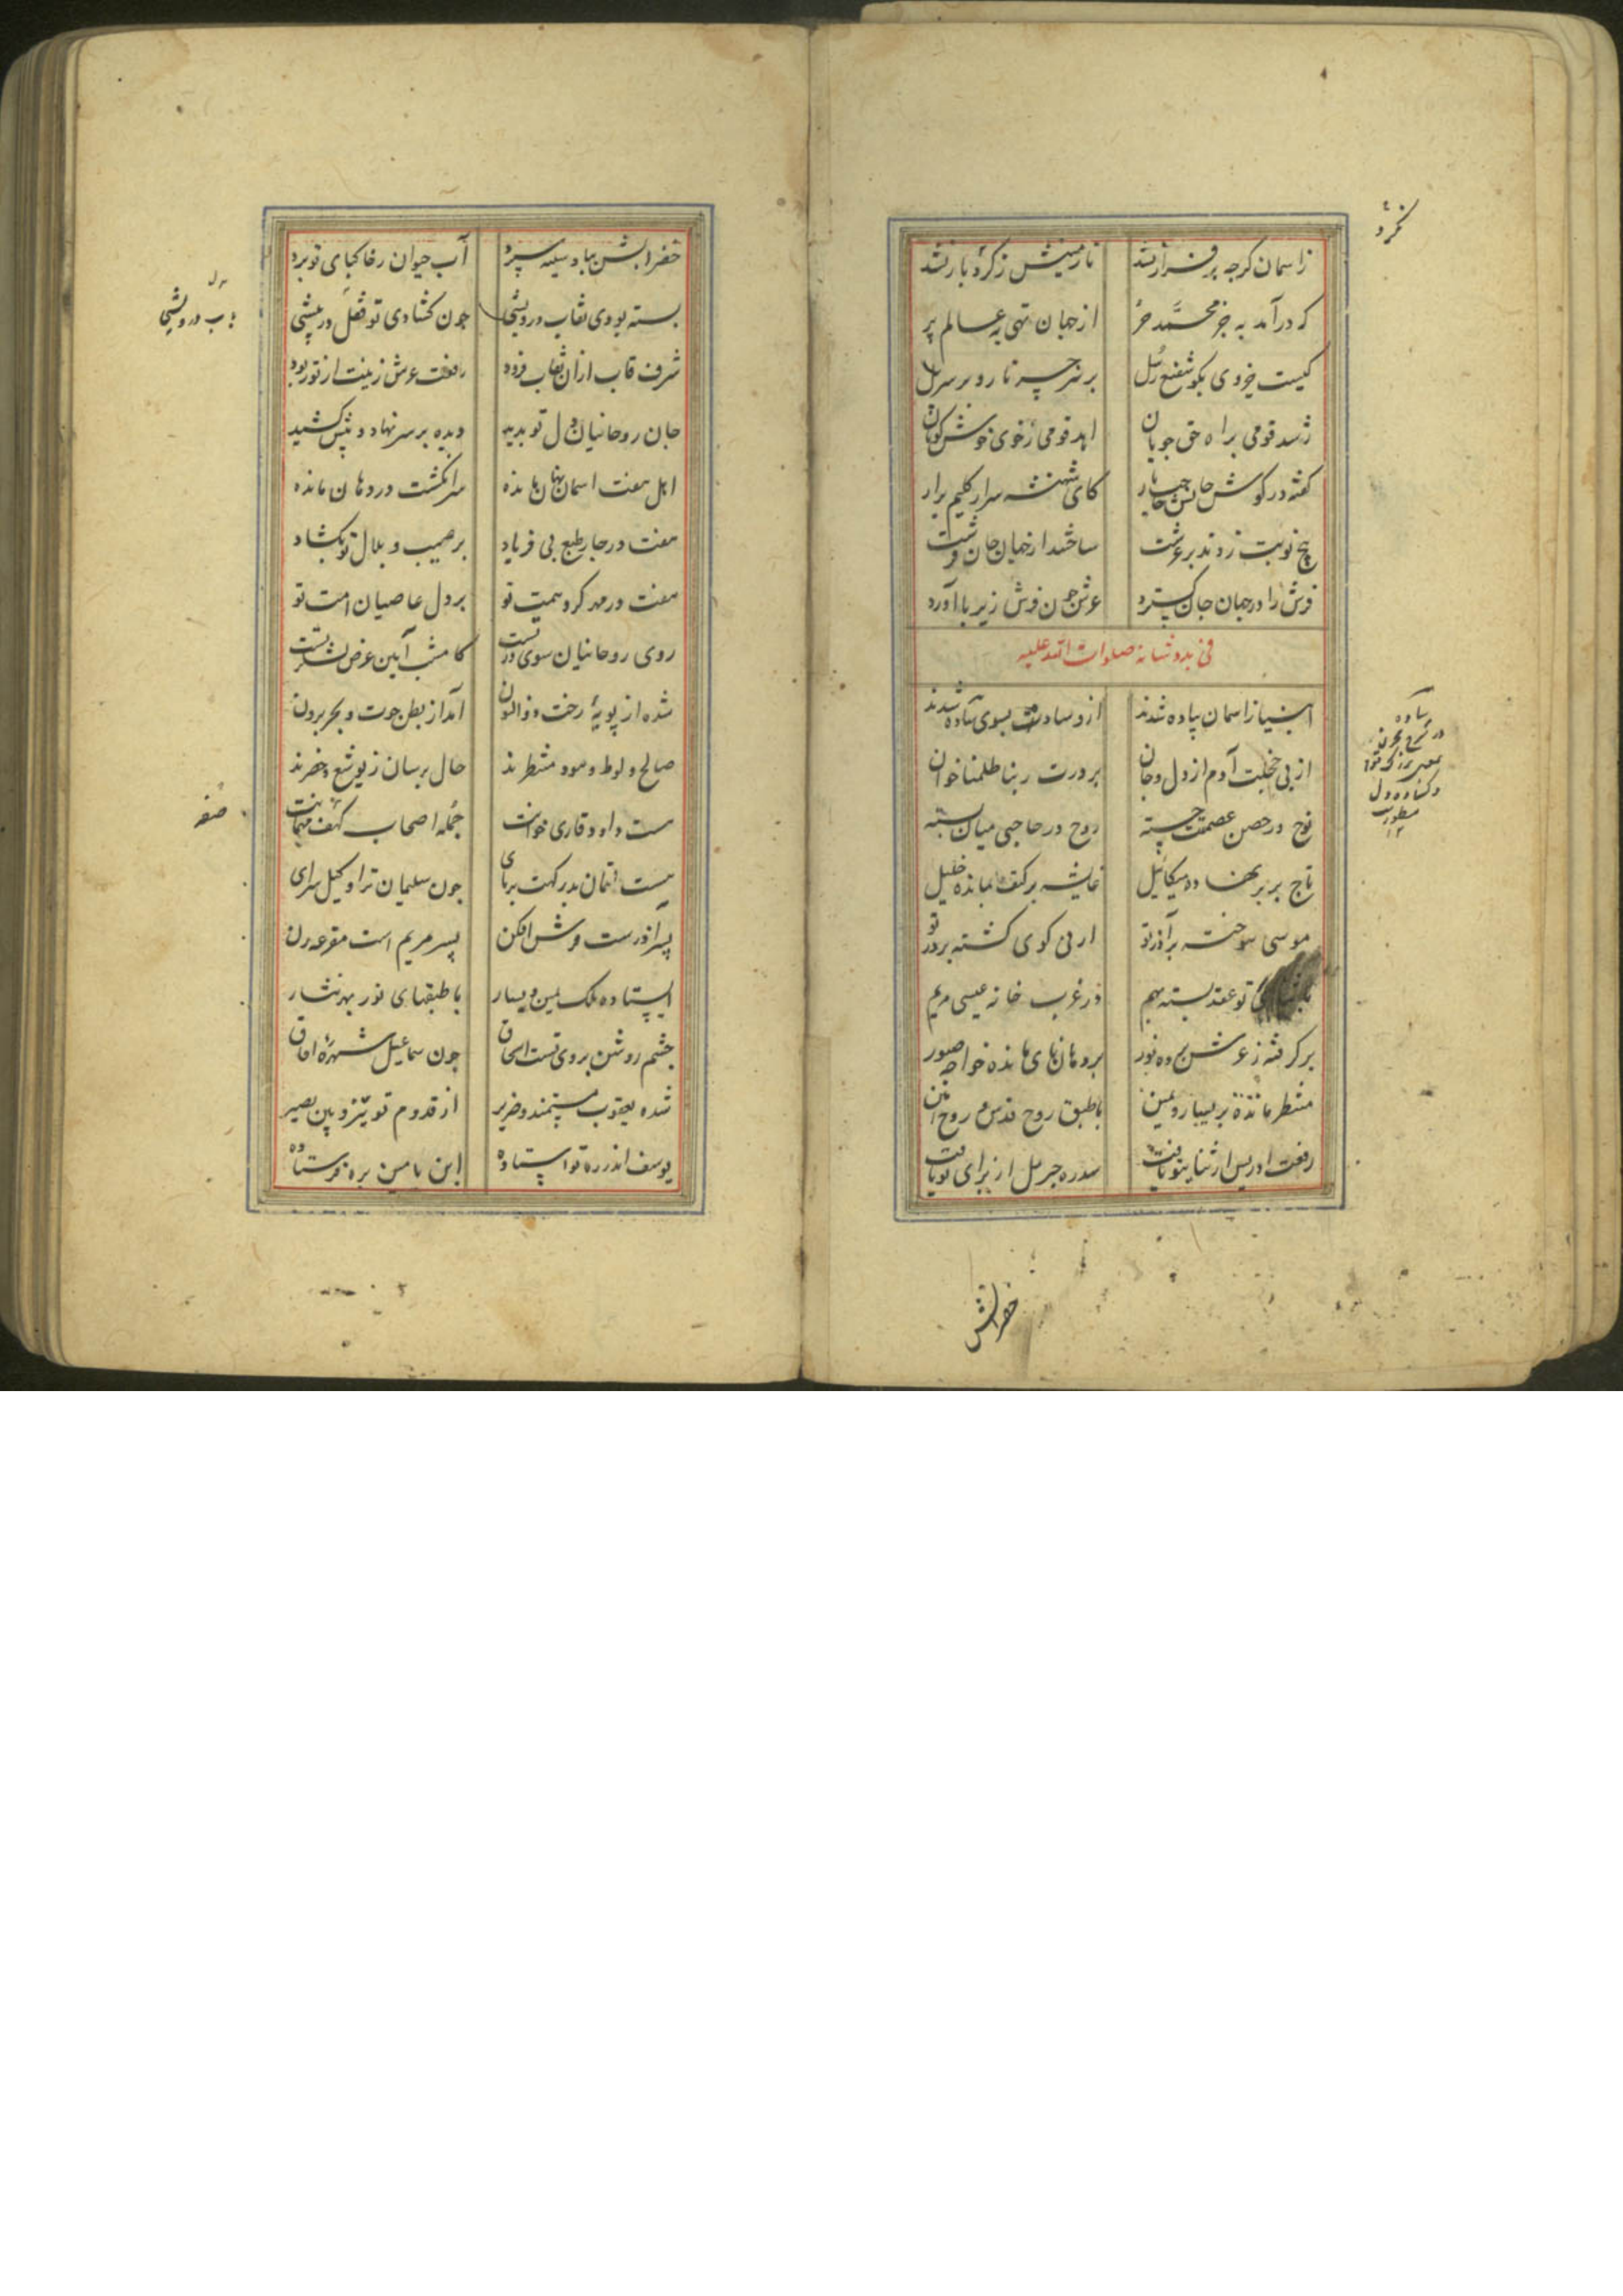 زاسمان کرچه برفراز نشد
تا زمینش زکرد باز نشد
که درآمد به جز محمد حر
از جهان تهی به عالم پر
کیست جزوی بکو شفیع رسل
شد قومی براه حق جویان
اهد قومی زخوی خوش کویان
گفته در گوش جانش
کای شهنشه سر از گلیم برآر
پنج نوبت زدند بر عرشت
ساختند از جهان جان فرشت
فرش را در جهان جان گسترد
عرش چون فرش زیر پا آورد
فی بدو شانه صلوات الله علیه
انبیا زاسمان پیاده شدند
بسوی ساده شدند
از پی خجلت آدم از دل و جان
بر درت ربنا ظلمنا خوان
نوح در حصن عصمتت جسته
روح در حاجبی میان بسته
تاج بر سر نهاده میکائیل
غاشیه بر کتف نهاده خلیل
موسی سوخته بر آذر تو
ارنی گوی گشته بر در تو
تو عقد بسته بهم
در غرب خانه عیسی مریم
برگرفته ز عرش پرده نور
بر دهان نای مانده خواجه صور
منتظر مانده بر یسار و یمین
با طبق روح قدس و روح امین
رفعت ادریس از ثنای تو یافت
سدره جبرئیل از برای تو یافت
خضرابش
آب حیوان ز خاکپای تو برد
بسته بودی نقاب درویشی
چون گشادی تو قفل در پیشی
شرف قاب ازان نقاب فزود
رفعت عرش زینت از تو ربود
جان روحانیان دل تو بدید
دیده بر سر نهاد و پیش کشید
اهل هفت اسمان نهان مانده
سر انگشت در دهان مانده
هفت در چار طبع بی فریاد
بر صهیب و بلال تو بگشاد
هفت در مهر کرد همت تو
بر دل عاصیان امت تو
روی روحانیان سوی در تست
کامشب آیین عرض لشکر تست
شده از پویه رخت ذوالنون
آمد از بطن حوت و بحر برون
صالح و لوط و هود منتظرند
حال پرسان ز یوشع و خضرند
هست داود قاری خوانت
جمله اصحاب کهف مهمانت
هست لقمان بدرکهت بر پای
چون سلیمان ترا وکیل سرای
پسر آذرست فرش افکن
پسر مریم است مقرعه زن
ایستاده ملک یمین و یسار
با طبقهای نور بهر نثار
چشم روشن بروی تست اسحاق
چون سماعیل شهره آفاق
شده یعقوب مستمند و ضریر
از قدوم تو تیزبین و بصیر
یوسف اندر ره تو استاده
ابن یامین بره فرستاده
باب درویشی